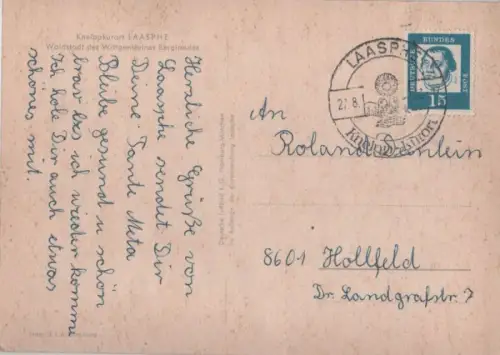 Kneippkurort LAASPHE
Waldstadt des Wittgensteiner Berglandes
Herzliche Grüße von
Laasphe sendet Dir
Deine Tante Meta
Bleibe gesund u schön
brav bis ich wieder komme
Ich hole Dir auch etwas
schönes mit.
LAASPHE
27.8.
Kneippkurort
DEUTSCHE BUNDESPOST
15
An
Roland
8601 Hollfeld
Dr. Landgrafstr. 7